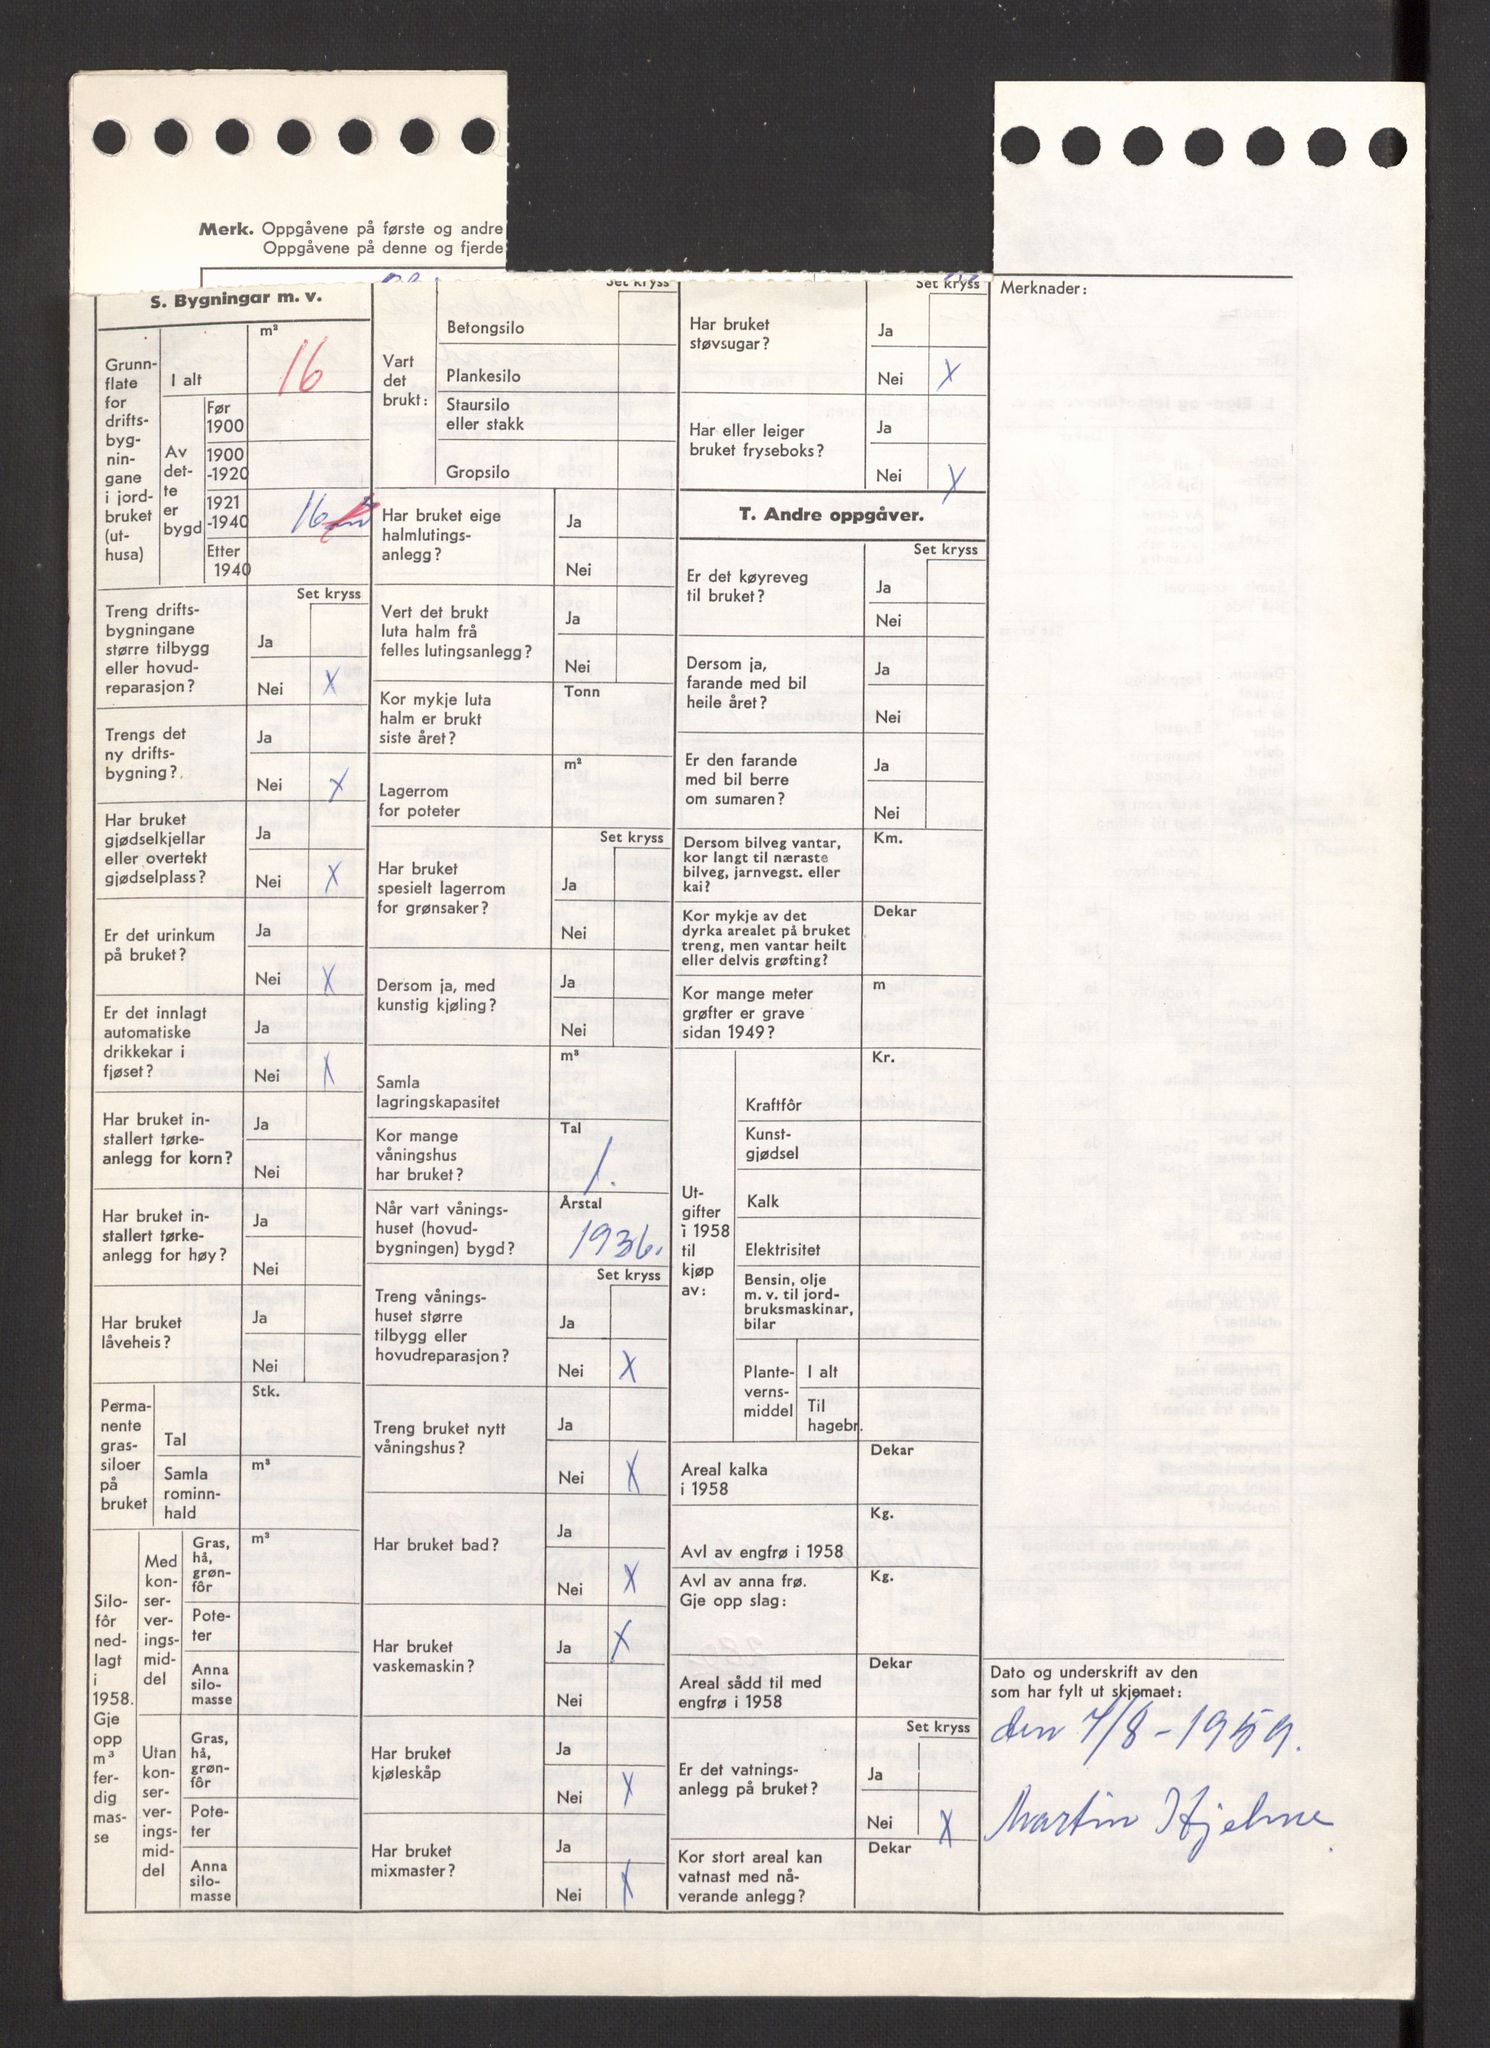 Merk. Oppgåvene på første og andre
Oppgåvene på denne og fjerde
S. Bygningar m. v.
Grunn-
flate
for
drifts-
byg-
nin-
gane
i jord-
bruket
(ut-
husa)
m²
I alt
16
Av
det-
te
er
bygd
Før
1900
1900
-1920
1921
-1940
16
Etter
1940
Set kryss
Treng drifts-
bygningane
større tilbygg
eller hovud-
reparasjon?
Ja
Nei X
Trengs det
ny drifts-
bygning?
Ja
Nei X
Har bruket
gjødselkjellar
eller overtekt
gjødselplass?
Ja
Nei X
Er det urinkum
på bruket?
Ja
Nei X
Er det innlagt
automatiske
drikkekar i
fjøset?
Ja
Nei X
Har bruket in-
stallert tørke-
anlegg for korn?
Ja
Nei
Har bruket in-
stallert tørke-
anlegg for høy?
Ja
Nei
Har bruket
låveheis?
Ja
Nei
Perma-
nente
gras-
siloer
på
bruket
Stk.
Tal
m³
Samla
rominn-
hald
Silo-
fôr
ned-
lagt
i
1958.
Gje
opp
m³
fer-
dig
mas-
se
Med
kon-
ser-
ver-
ings-
mid-
del
m³
Gras,
hå,
grøn-
fôr
Pote-
ter
Anna
silo-
masse
Utan
kon-
ser-
ver-
ings-
mid-
del
Gras,
hå,
grøn-
fôr
Pote-
ter
Anna
silo-
masse
Set kryss
Vart
det
brukt:
Betongsilo
Plankesilo
Staursilo
eller stakk
Gropsilo
Har bruket eige
halmlutings-
anlegg?
Ja
Nei
Vert det brukt
luta halm frå
felles lutingsanlegg?
Ja
Nei
Kor mykje luta
halm er brukt
siste året?
Tonn
Lagerrom
for poteter
m²
Set kryss
Har bruket
spesielt lagerrom
for grønsaker?
Ja
Nei
Dersom ja, med
kunstig kjøling?
Ja
Nei
Samla
lagringskapasitet
m³
Kor mange
våningshus
har bruket?
Tal
1.
Når vart vånings-
huset (hovud-
bygningen) bygd?
Årstal
1936.
Set kryss
Treng vånings-
huset større
tilbygg eller
hovudreparasjon?
Ja
Nei X
Treng bruket nytt
våningshus?
Ja
Nei X
Har bruket bad?
Ja
Nei X
Har bruket
vaskemaskin?
Ja X
Nei
Har bruket
kjøleskåp
Ja
Nei X
Har bruket
mixmaster?
Ja
Nei X
Set kryss
Har bruket
støvsugar?
Ja
Nei X
Har eller leiger
bruket fryseboks?
Ja
Nei X
T. Andre oppgåver.
Set kryss
Er det køyreveg
til bruket?
Ja
Nei
Dersom ja,
farande med bil
heile året?
Ja
Nei
Er den farande
med bil berre
om sumaren?
Ja
Nei
Dersom bilveg vantar,
kor langt til næraste
bilveg, jarnvegst. eller
kai?
Km.
Kor mykje av det
dyrka arealet på bruket
treng, men vantar heilt
eller delvis grøfting?
Dekar
Kor mange meter
grøfter er grave
sidan 1949?
m
Ut-
gifter
i 1958
til
kjøp
av:
Kr.
Kraftfôr
Kunst-
gjødsel
Kalk
Elektrisitet
Bensin, olje
m. v. til jord-
bruksmaskinar,
bilar
Plante-
verns-
middel
I alt
Til
hagebr.
Areal kalka
i 1958
Dekar
Avl av engfrø i 1958
Kg.
Avl av anna frø.
Gje opp slag:
Kg.
Areal sådd til med
engfrø i 1958
Dekar
Set kryss
Er det vatnings-
anlegg på bruket?
Ja
Nei X
Kor stort areal kan
vatnast med nå-
verande anlegg?
Dekar
Merknader:
Dato og underskrift av den
som har fylt ut skjemaet:
den 7/8 - 1959.
Martin Hjelme